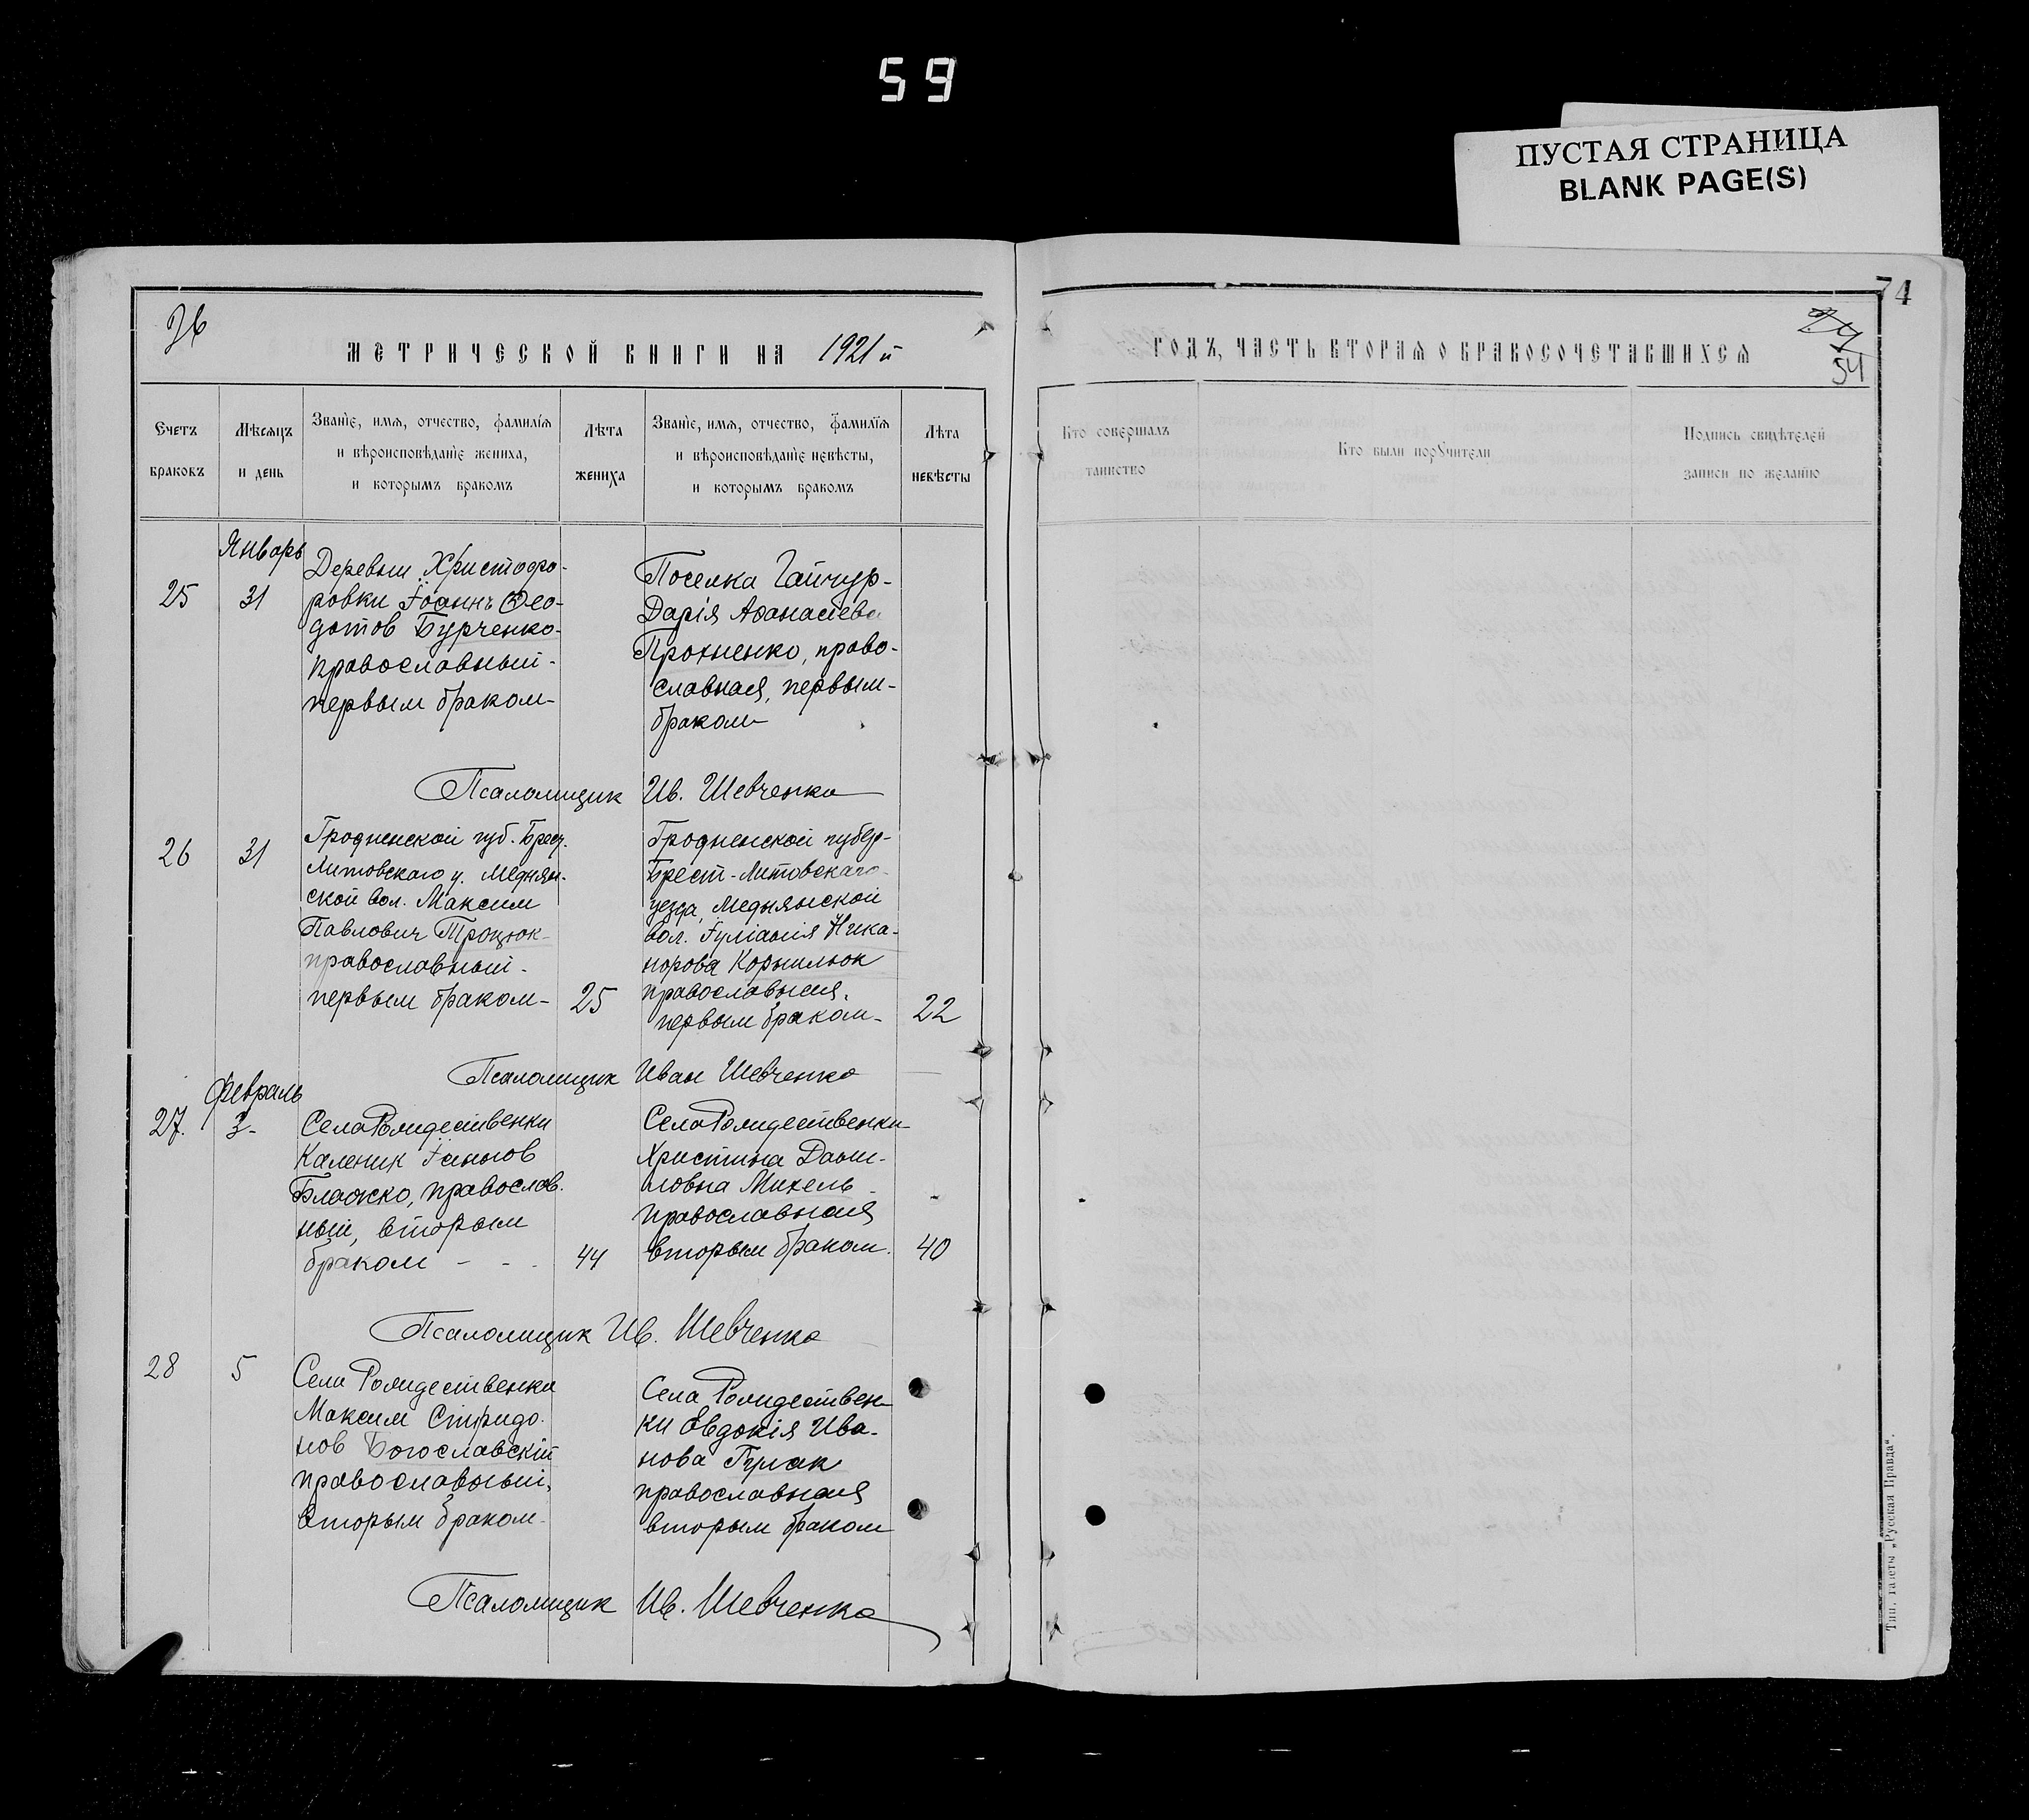 59
ПУСТАЯ СТРАНИЦА
BLANK PAGE(S)
74
54
МЕТРИЧЕСКОЙ КНИГИ НА 1921 й
ГОДЪ, ЧАСТЬ ВТОРАЯ О БРАКОСОЧЕТАВШИХСЯ
Счетъ
браковъ
Мѣсяцъ
и день
Званіе, имя, отчество, фамилія
и вѣроисповѣданіе жениха,
и которымъ бракомъ
Лѣта
жениха
Званіе, имя, отчество, фамилія
и вѣроисповѣданіе невѣсты,
и которымъ бракомъ
Лѣта
невѣсты
Кто совершалъ
таинство
Кто были поручители
Подпись свидѣтелей
записи по желанію
Январь
25
31
Деревни Христофо-
ровки Іоаннъ Ѳео-
дотов Бурченко-
православный-
первым браком-
Поселка Гайчур-
Дарія Афанасіева
Прохненко, право-
славная, первым-
браком
Псаломщик Ив. Шевченко
26
31
Гродненской губ. Брест.
Литовскаго у. Меднян-
ской вол. Максим
Павлович Троцюк-
православный-
первым браком-
25
Гродненской губер-
Брест-Литовскаго-
уезда, Меднянской
вол. Іуліанія Ника-
норова Корнилюк
православная,
первым браком-
22
Псаломщик Иван Шевченко
Февраль
27.
3-
Села Рождественки
Каленик Іаннов
Блажко, православ.
ный, вторым
браком - - -
44
Села Рождественки
Христина Дани-
ловна Михель
православная
вторым браком.
40
Псаломщик Ив. Шевченко
28
5
Села Рождественки
Максим Спиридо-
нов Богославскій
православный,
вторым браком-
Села Рождествен-
ки Евдокія Ива-
нова Гулак
православная
вторым браком
Псаломщик Ив. Шевченко
Тип. газеты „Русская Правда“.